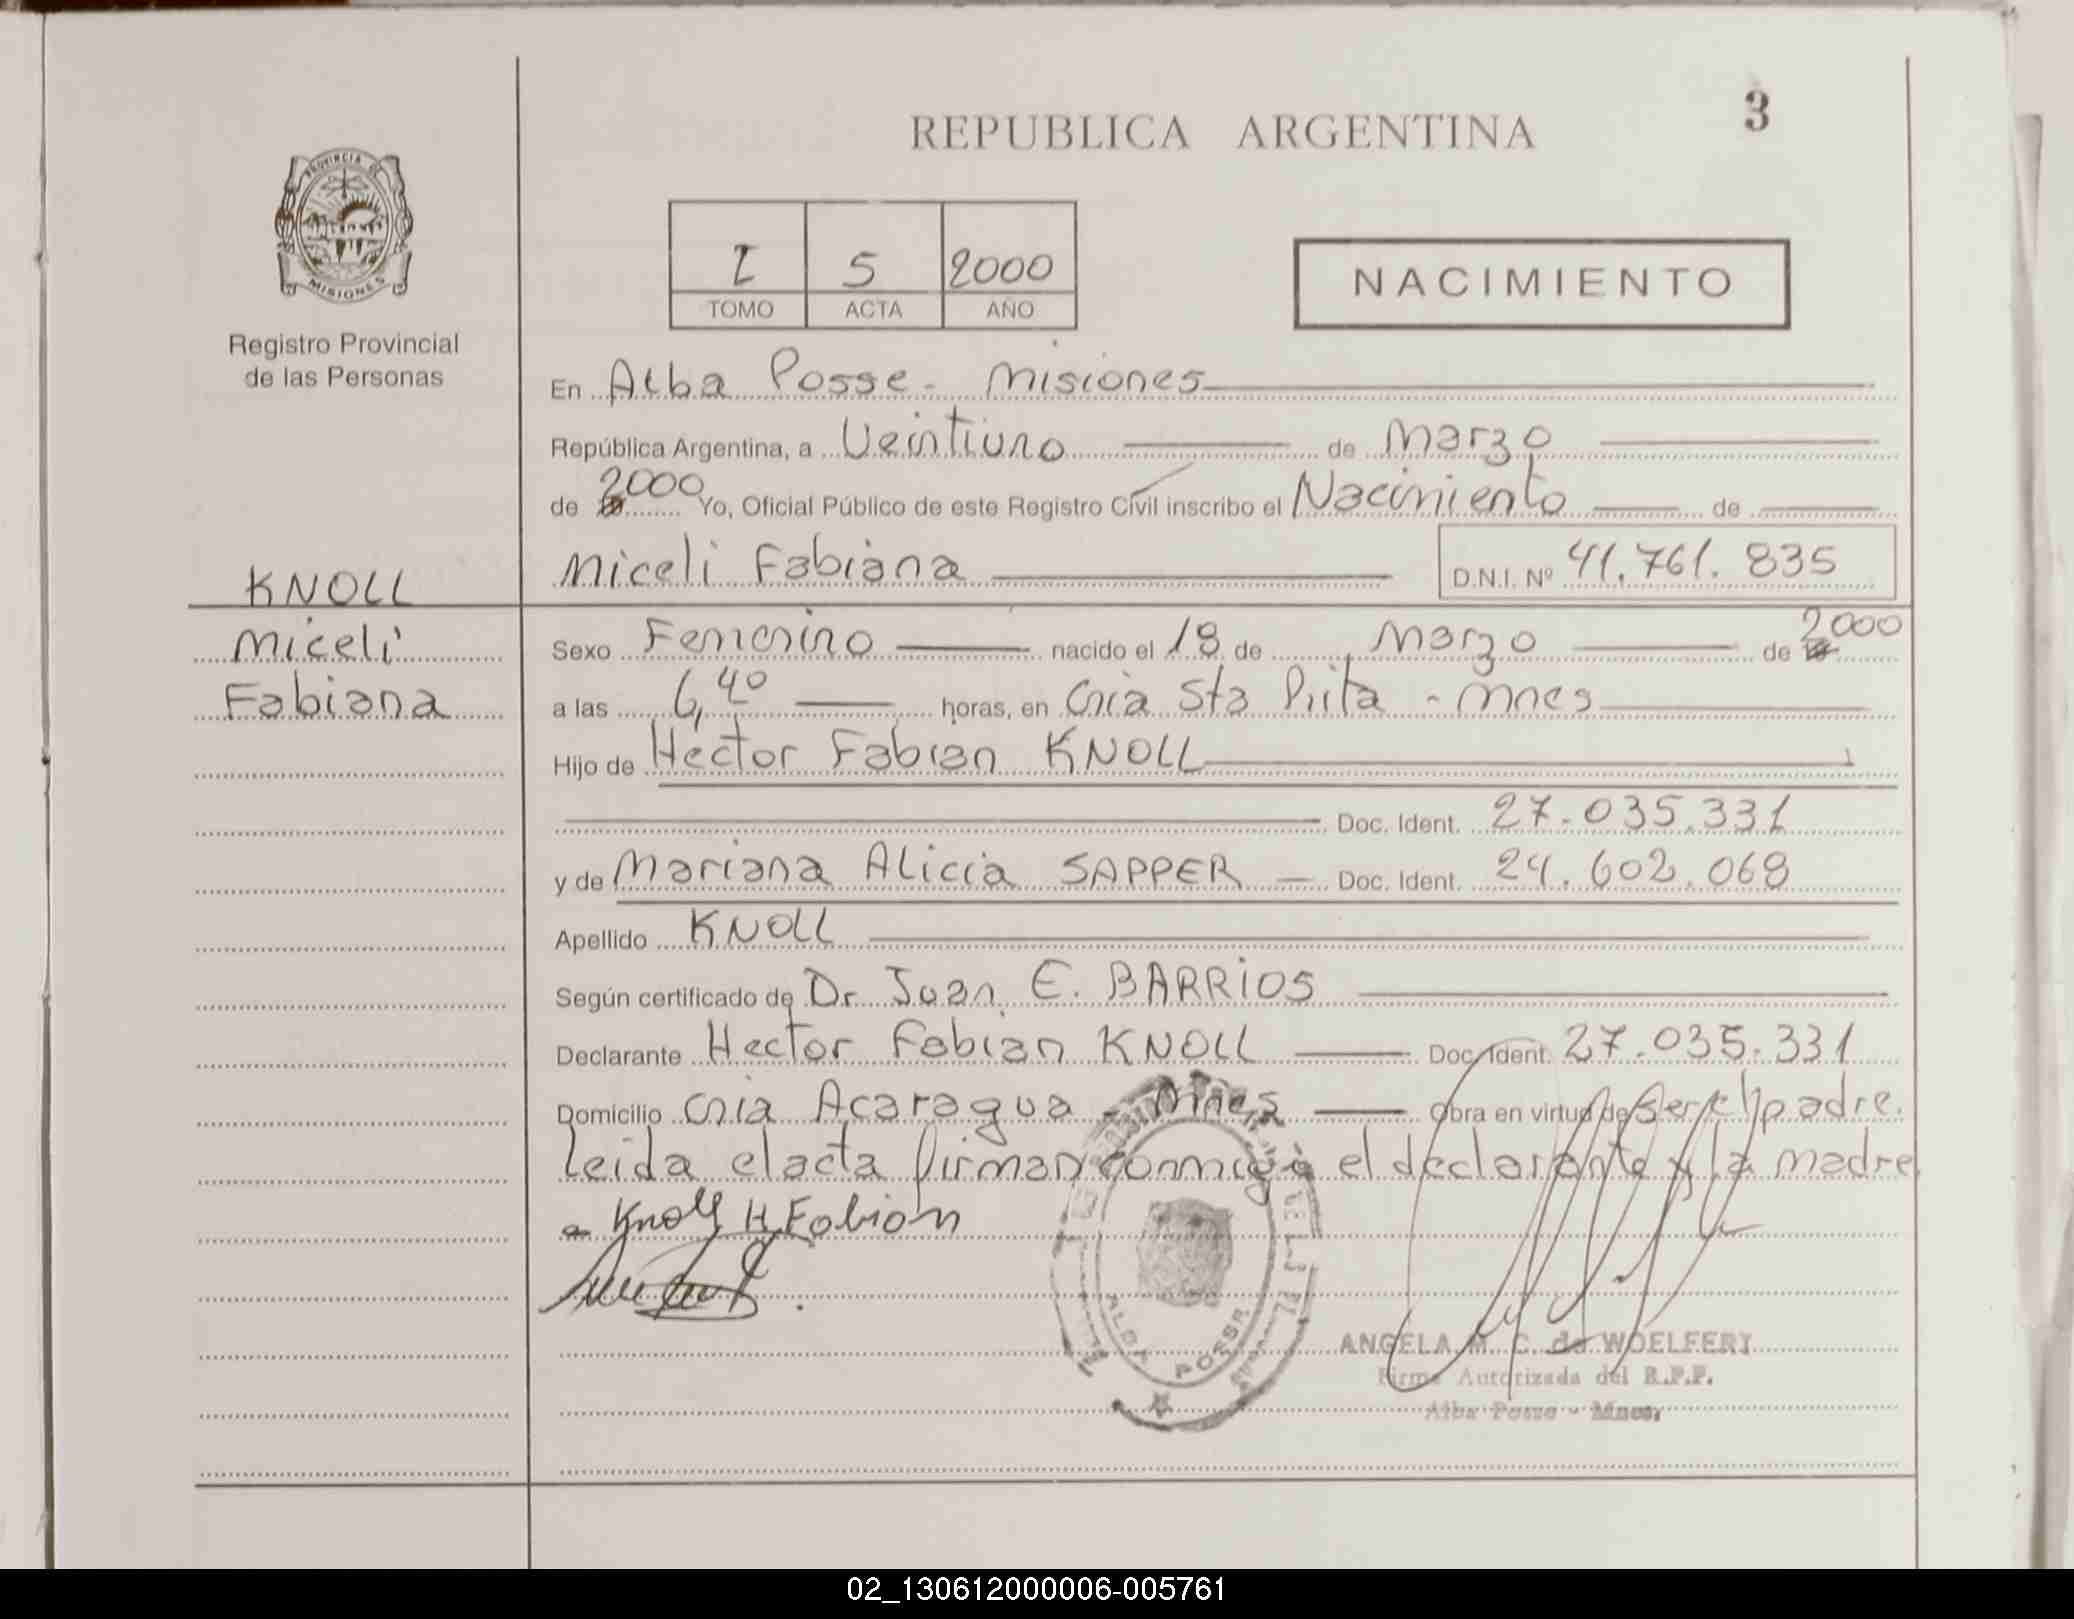 REPUBLICA ARGENTINA
3
PROVINCIA DE
MISIONES
Registro Provincial
de las Personas
I 5 2000
TOMO ACTA AÑO
NACIMIENTO
En Alba Posse - Misiones
República Argentina, a Veintiuno de Marzo
de 2000 Yo, Oficial Público de este Registro Civil inscribo el Nacimiento de
Miceli Fabiana D.N.I. Nº 41.761.835
KNOLL
Miceli
Fabiana
Sexo Femenino nacido el 18 de Marzo de 2000
a las 6,40 horas, en Cnia Sta Rita - Mnes
Hijo de Hector Fabian KNOLL
Doc. Ident. 27.035.331
y de Mariana Alicia SAPPER Doc. Ident. 24.602.068
Apellido KNOLL
Según certificado de Dr. Juan E. BARRIOS
Declarante Hector Fabian KNOLL Doc. Ident. 27.035.331
Domicilio Cnia Acaragua - Mnes Obra en virtud de Ser el padre.
Leida el acta firman conmigo el declarante y la madre
Knoll H. Fabian
ALBA POSSE
ANGELA M. C. de WOELFERT
Firma Autorizada del R.P.P.
Alba Posse - Mnes.
02_130612000006-005761